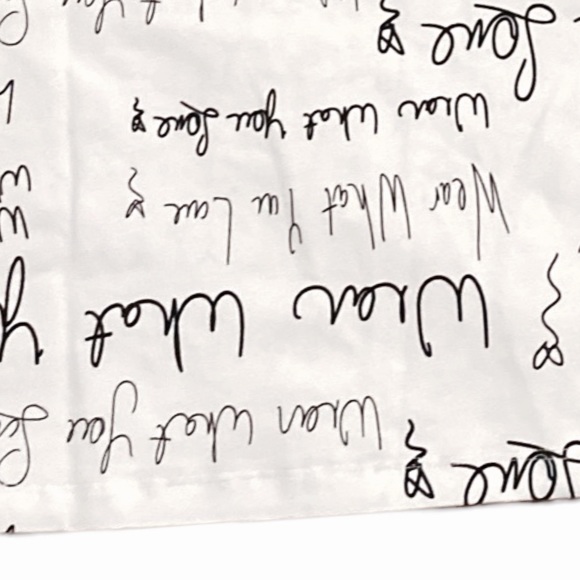 Love
Wear what You
Wear what
Wear What You Love
Wear what you Love
Love